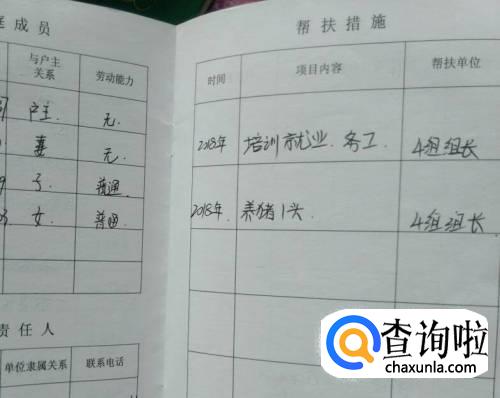 庭成员
与户主关系 劳动能力
户主 无.
妻 无
子 普通
女 普通
责任人
单位隶属关系 联系电话
帮扶措施
时间 项目内容 帮扶单位
2018年 培训就业、务工 4组组长
2018年. 养猪1头. 4组组长
查询啦
chaxunla.com